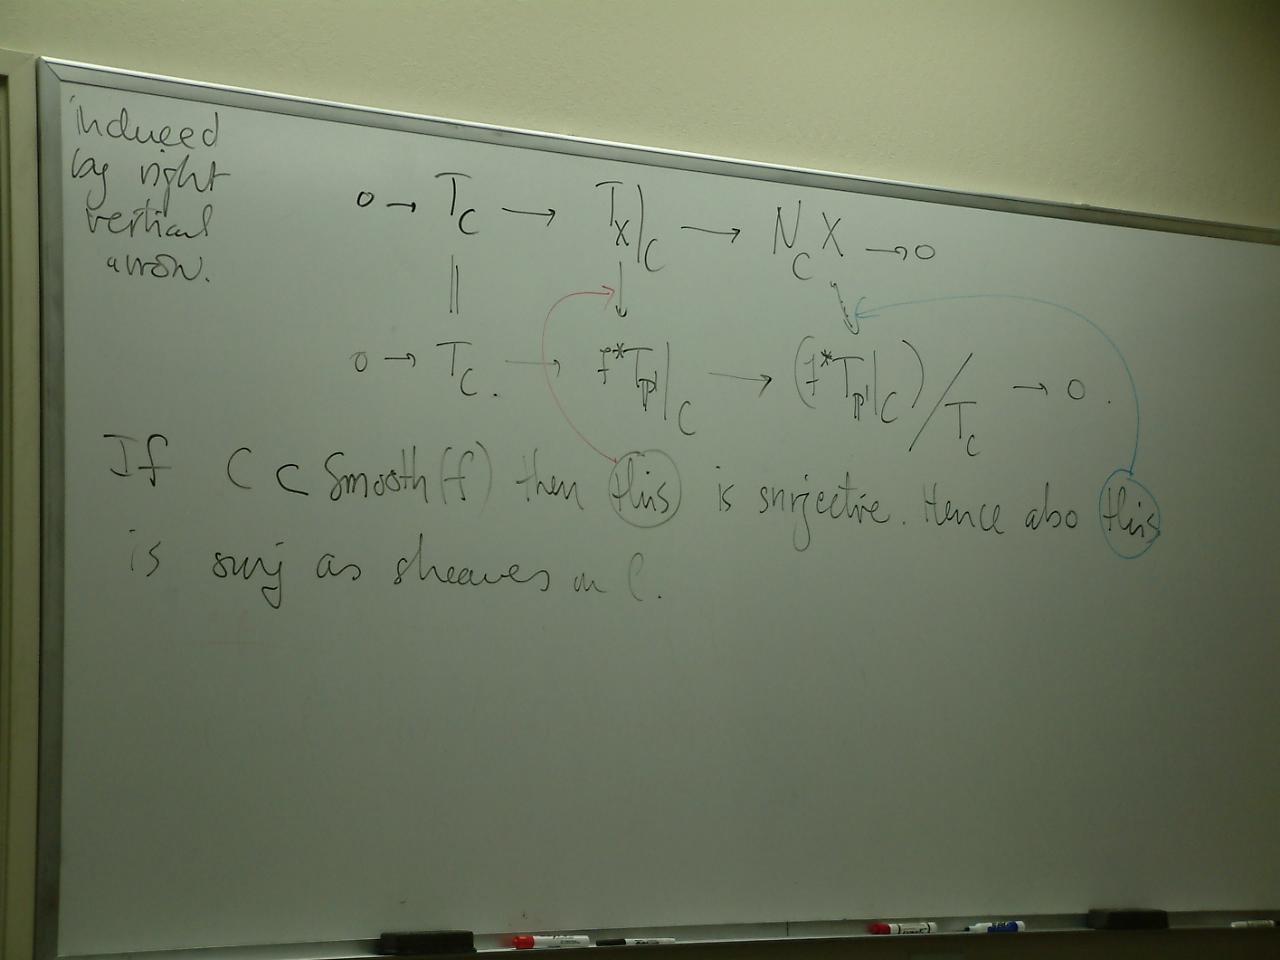 induced
by right
vertical
arrow.
0 → T_C → T_X|_C → N_C X → 0
|| ↓ ↓
0 → T_C. → f*T_ℙ¹|_C → (f*T_ℙ¹|_C)/T_C → 0.
If C ⊂ Smooth(f) then this is surjective. Hence also this
is surj as sheaves on C.